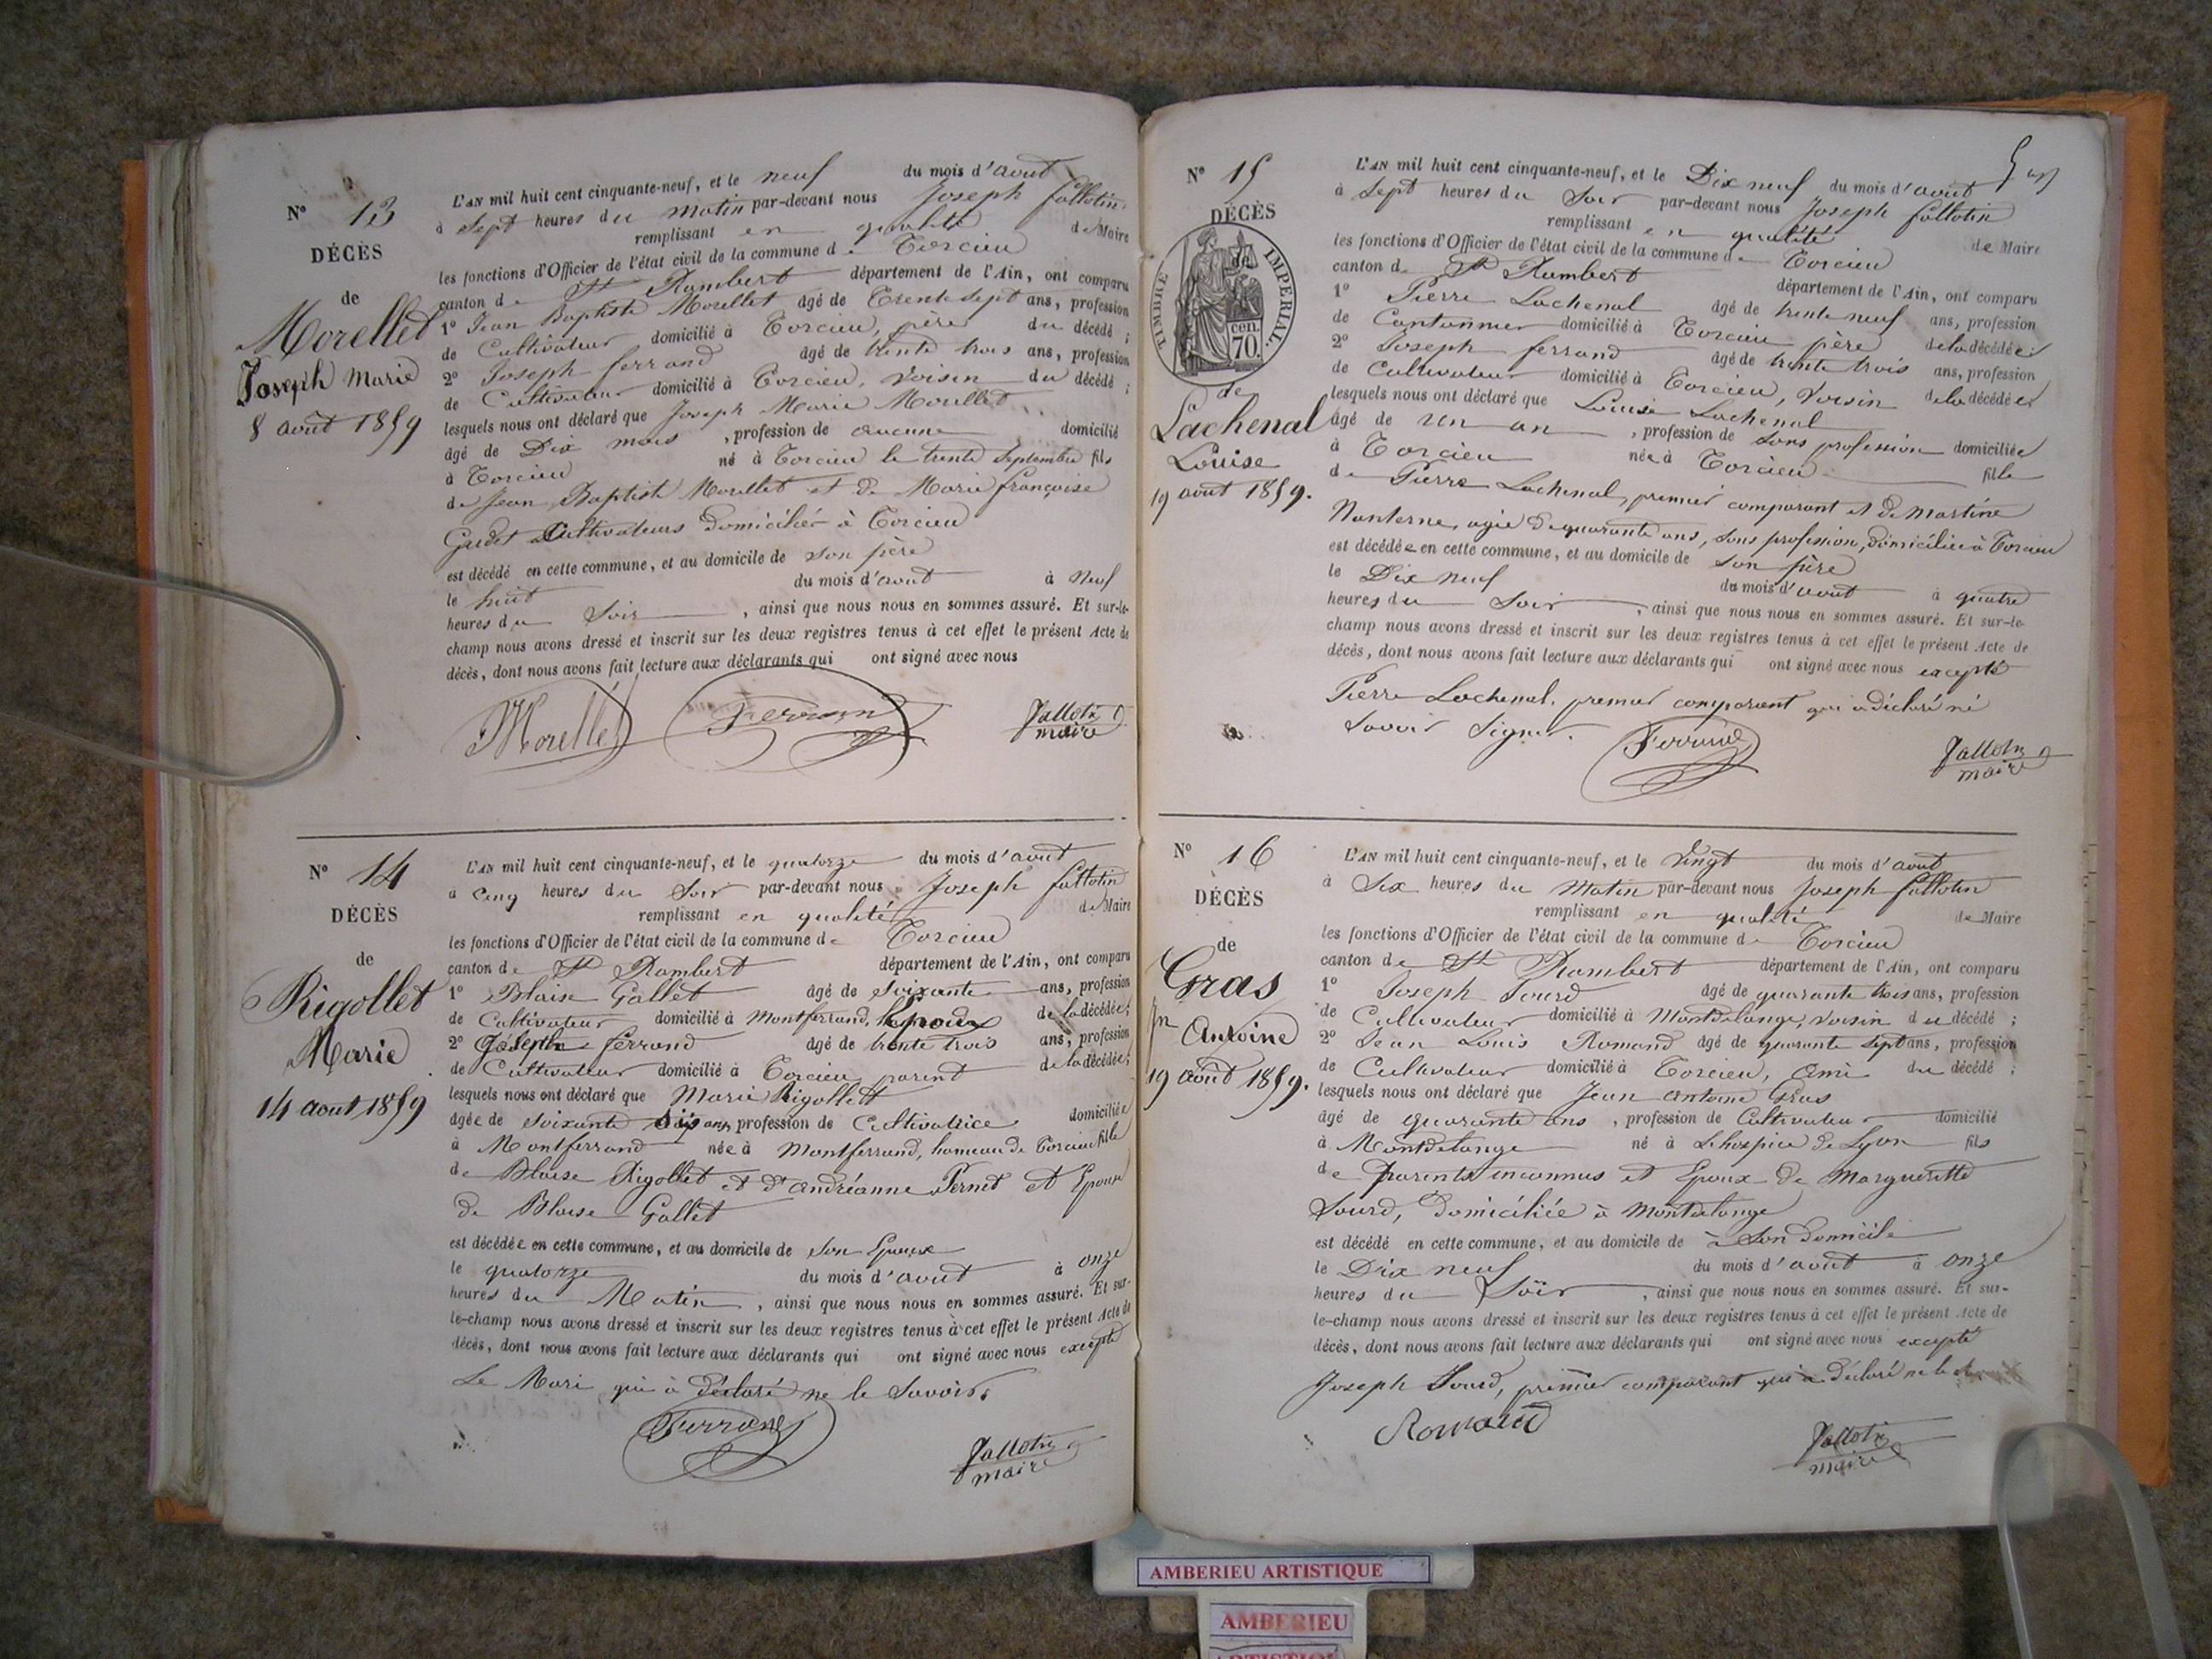 N° 13
DÉCÈS
de
Morellet
Joseph Marie
8 août 1859
L'AN mil huit cent cinquante-neuf, et le neuf du mois d'août
à sept heures du matin par-devant nous Joseph Fallotin
remplissant en qualité de Maire
les fonctions d'Officier de l'état civil de la commune de Torcieu
canton de St Rambert département de l'Ain, ont comparu
1° Jean Baptiste Morellet âgé de trente sept ans, profession
de Cultivateur domicilié à Torcieu, père du décédé ;
2° Joseph ferrand âgé de trente trois ans, profession
de Cultivateur domicilié à Torcieu, voisin du décédé ;
lesquels nous ont déclaré que Joseph Marie Morellet
âgé de Dix mois , profession de aucune domicilié
à Torcieu né à Torcieu le trente Septembre fils
de Jean Baptiste Morellet et de Marie françoise
Gudet Cultivateurs domiciliés à Torcieu
est décédé en cette commune, et au domicile de son père
le huit du mois d'août à Neuf
heures du Soir , ainsi que nous nous en sommes assuré. Et sur-le-
champ nous avons dressé et inscrit sur les deux registres tenus à cet effet le présent Acte de
décès, dont nous avons fait lecture aux déclarants qui ont signé avec nous
Morellet Ferrand Fallotin
maire
N° 14
DÉCÈS
de
Rigollet
Marie
14 aout 1859
L'AN mil huit cent cinquante-neuf, et le quatorze du mois d'août
à Cinq heures du Soir par-devant nous Joseph fallotin
remplissant en qualité de Maire
les fonctions d'Officier de l'état civil de la commune de Torcieu
canton de St Rambert département de l'Ain, ont comparu
1° Blaise Gallet âgé de soixante ans, profession
de Cultivateur domicilié à Montferrand, époux de la décédée ;
2° Joseph ferrand âgé de trente trois ans, profession
de Cultivateur domicilié à Torcieu, parent de la décédée ;
lesquels nous ont déclaré que Marie Rigollet
âgée de soixante ans, profession de Cultivatrice domiciliée
à Montferrand née à Montferrand, hameau de Torcieu fille
de Blaise Rigollet et d'andréanne Pernet et Epouse
de Blaise Gallet
est décédée en cette commune, et au domicile de son Epoux
le quatorze du mois d'août à onze
heures du Matin , ainsi que nous nous en sommes assuré. Et sur-
le-champ nous avons dressé et inscrit sur les deux registres tenus à cet effet le présent Acte de
décès, dont nous avons fait lecture aux déclarants qui ont signé avec nous excepté
Le Mari qui à déclaré ne le Savoir.
Ferrand Fallotin
maire
N° 15
DÉCÈS
TIMBRE IMPERIAL.
70. cen.
de
Lachenal
Louise
19 août 1859.
L'AN mil huit cent cinquante-neuf, et le Dix neuf du mois d'août
à Sept heures du Soir par-devant nous Joseph fallotin
remplissant en qualité de Maire
les fonctions d'Officier de l'état civil de la commune de Torcieu
canton de St Rambert département de l'Ain, ont comparu
1° Pierre Lachenal âgé de trente neuf ans, profession
de Cantonnier domicilié à Torcieu père de la décédée ;
2° Joseph ferrand âgé de trente trois ans, profession
de Cultivateur domicilié à Torcieu, voisin de la décédée
lesquels nous ont déclaré que Louise Lachenal
âgé de un an , profession de sans profession domiciliée
à Torcieu née à Torcieu fille
de Pierre Lachenal, premier comparant et de Martine
Nanterne, agée de quarante ans, sans profession, domiciliée à Torcieu
est décédée en cette commune, et au domicile de son père
le Dix neuf du mois d'août à quatre
heures du Soir , ainsi que nous nous en sommes assuré. Et sur-le-
champ nous avons dressé et inscrit sur les deux registres tenus à cet effet le présent Acte de
décès, dont nous avons fait lecture aux déclarants qui ont signé avec nous excepté
Pierre Lachenal, premier comparant qui a déclaré ne
savoir signer.
Ferrand Fallotin
maire
N° 16
DÉCÈS
de
Gras
jn Antoine
19 août 1859.
L'AN mil huit cent cinquante-neuf, et le Vingt du mois d'août
à Six heures du Matin par-devant nous Joseph fallotin
remplissant en qualité de Maire
les fonctions d'Officier de l'état civil de la commune de Torcieu
canton de St Rambert département de l'Ain, ont comparu
1° Joseph Sourd âgé de quarante trois ans, profession
de Cultivateur domicilié à Montdelange, voisin du décédé ;
2° Jean Louis Romand âgé de quarante sept ans, profession
de Cultivateur domicilié à Torcieu, ami du décédé ;
lesquels nous ont déclaré que Jean antoine Gras
âgé de quarante ans , profession de Cultivateur domicilié
à Montdelange né à Lehospice de Lyon fils
de Parents inconnus et Epoux de Margueritte
Sourd, domiciliée à Montdelange
est décédé en cette commune, et au domicile de à Son domicile
le Dix neuf du mois d'août à onze
heures du Soir , ainsi que nous nous en sommes assuré. Et sur-
le-champ nous avons dressé et inscrit sur les deux registres tenus à cet effet le présent Acte de
décès, dont nous avons fait lecture aux déclarants qui ont signé avec nous excepté
Joseph Sourd, premier comparant qui a déclaré ne le
Romand Fallotin
maire
AMBERIEU ARTISTIQUE
AMBERIEU
ARTISTIQUE